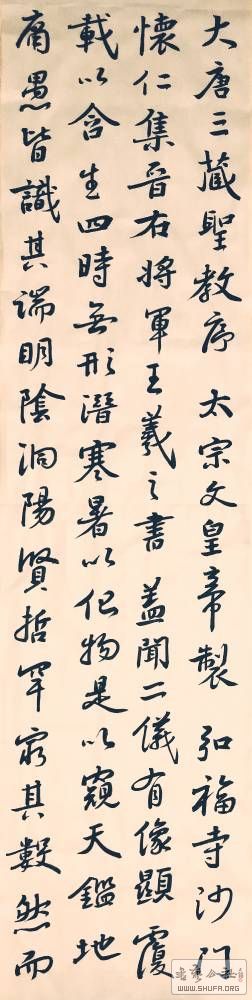 大唐三藏聖教序 太宗文皇帝製 弘福寺沙門
懷仁集晉右將軍王羲之書 蓋聞二儀有像顯覆
載以含生四時無形潛寒暑以化物是以窺天鑑地
庸愚皆識其端明陰洞陽賢哲罕窮其數然而
WWW.SHUFA.ORG